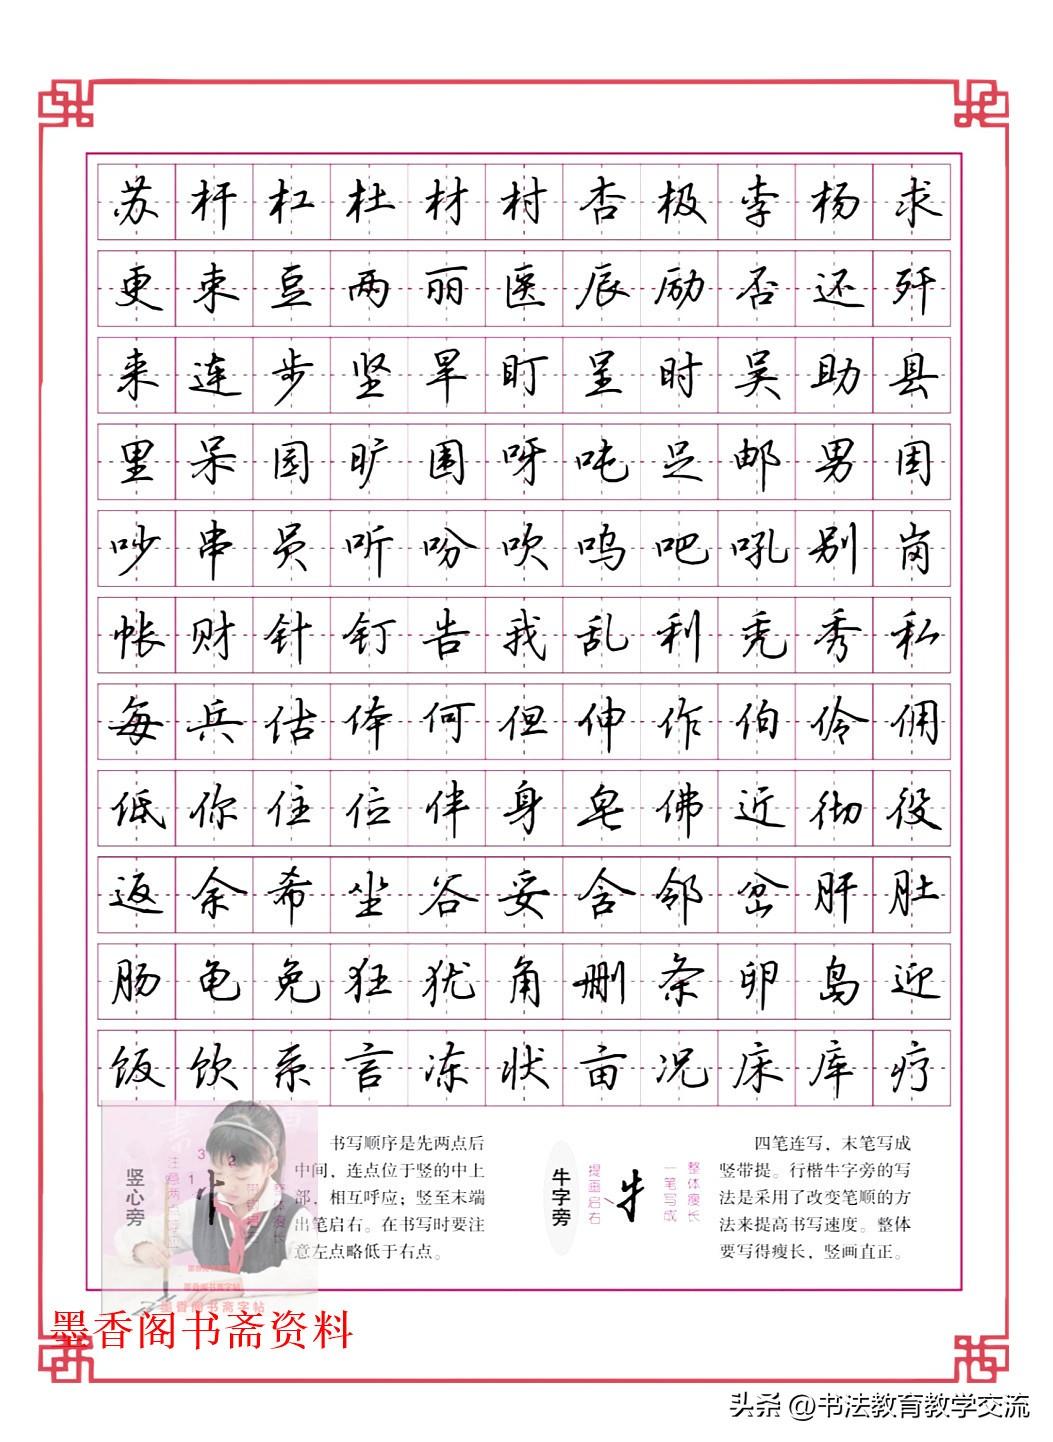 苏杆杠杜材村杏极李杨求
更束豆两丽医辰励否还歼
来连步坚旱盯呈时吴助县
里呆园旷围呀吨足邮男困
吵串员听吩吹呜吧吼别岗
帐财针钉告我乱利秃秀私
每兵估体何但伸作伯伶佣
低你住位伴身皂佛近彻役
返余希坐谷妥含邻岔肝肚
肠龟免狂犹角删条卵岛迎
饭饮系言冻状亩况床库疗
竖心旁
3
2
1
书写顺序是先两点后
中间，连点位于竖的中上
部，相互呼应；竖至末端
出笔启右。在书写时要注
意左点略低于右点。
牛字旁
提画启右
牛
一笔写成
整体瘦长
四笔连写，末笔写成
竖带提。行楷牛字旁的写
法是采用了改变笔顺的方
法来提高书写速度。整体
要写得瘦长，竖画直正。
墨香阁书斋字帖
墨香阁书斋字帖
墨香阁书斋字帖
墨香阁书斋资料
头条 @书法教育教学交流